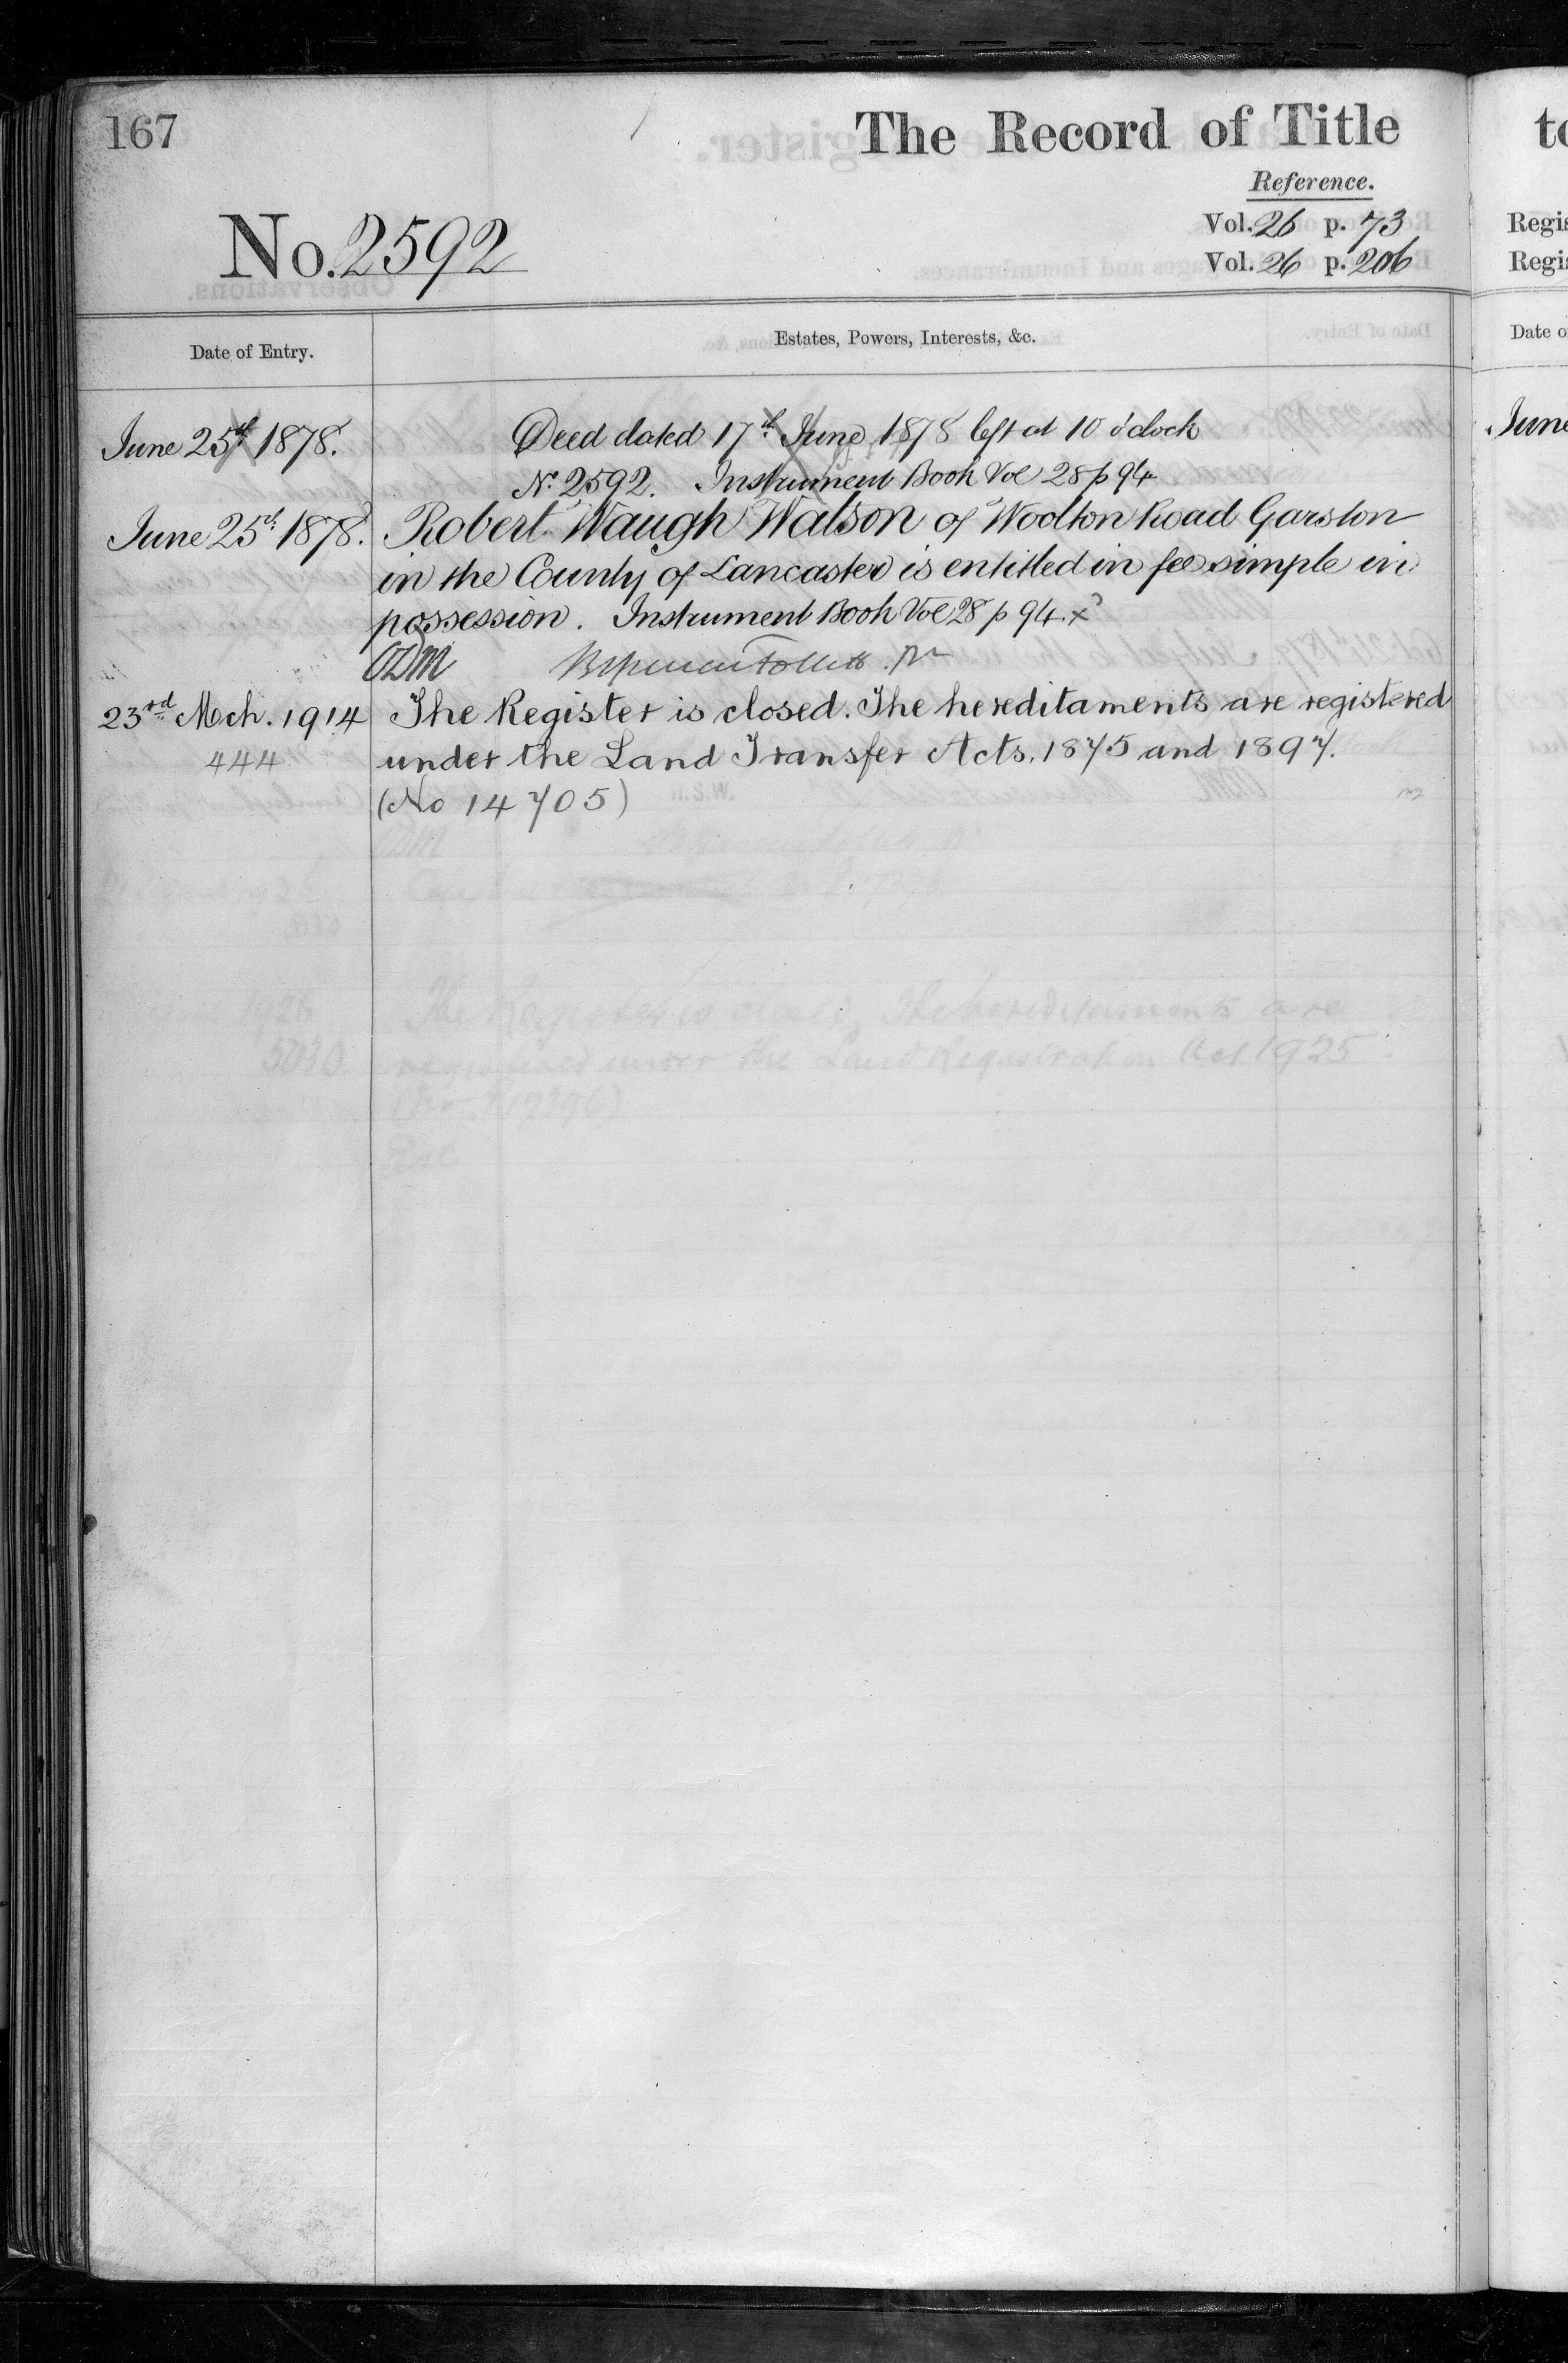 167
The Record of Title
Reference.
No. 2592
Vol. 26 p. 73
Vol. 26 p. 206
Date of Entry.
Estates, Powers, Interests, &c.
June 25th 1878.
Deed dated 17th June 1878 left at 10 o'clock
No. 2592. Instrument Book Vol 28 p 94
June 25th 1878.
Robert Waugh Watson of Woolton Road Garston
in the County of Lancaster is entitled in fee simple in
possession. Instrument Book Vol 28 p 94. x
23rd Mch. 1914
The Register is closed. The hereditaments are registered
444
under the Land Transfer Acts, 1875 and 1897.
(No 14705)
The Register is closed, The hereditaments are
registered under the Land Registration Act 1925
to
Regis
Regi
Date o
June